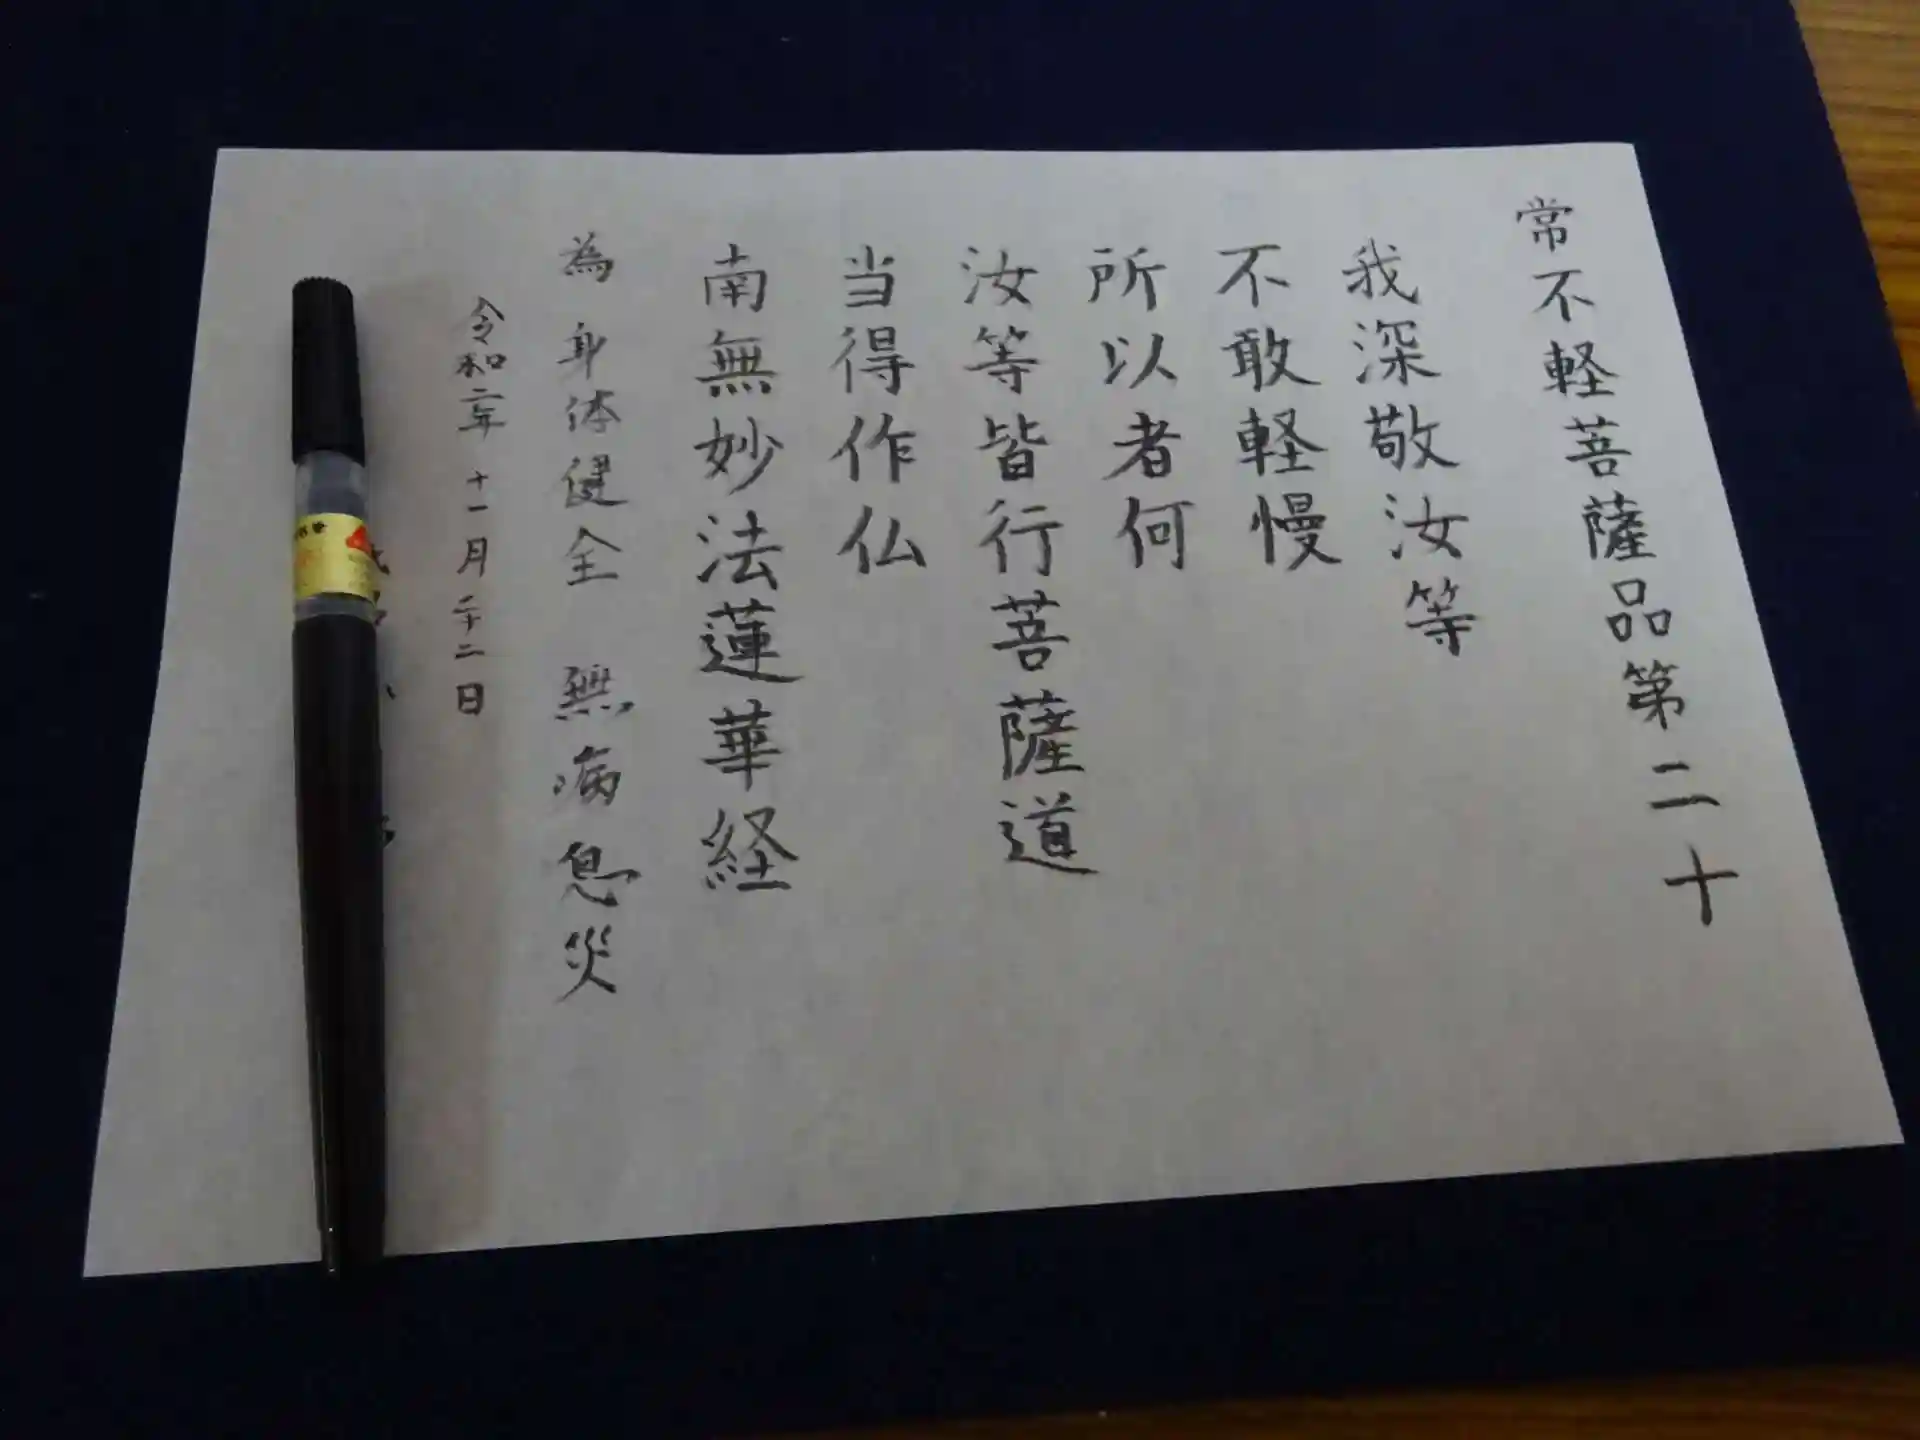 常不軽菩薩品第二十
我深敬汝等
不敢軽慢
所以者何
汝等皆行菩薩道
当得作仏
南無妙法蓮華経
為身体健全 無病息災
令和二年十一月二十二日